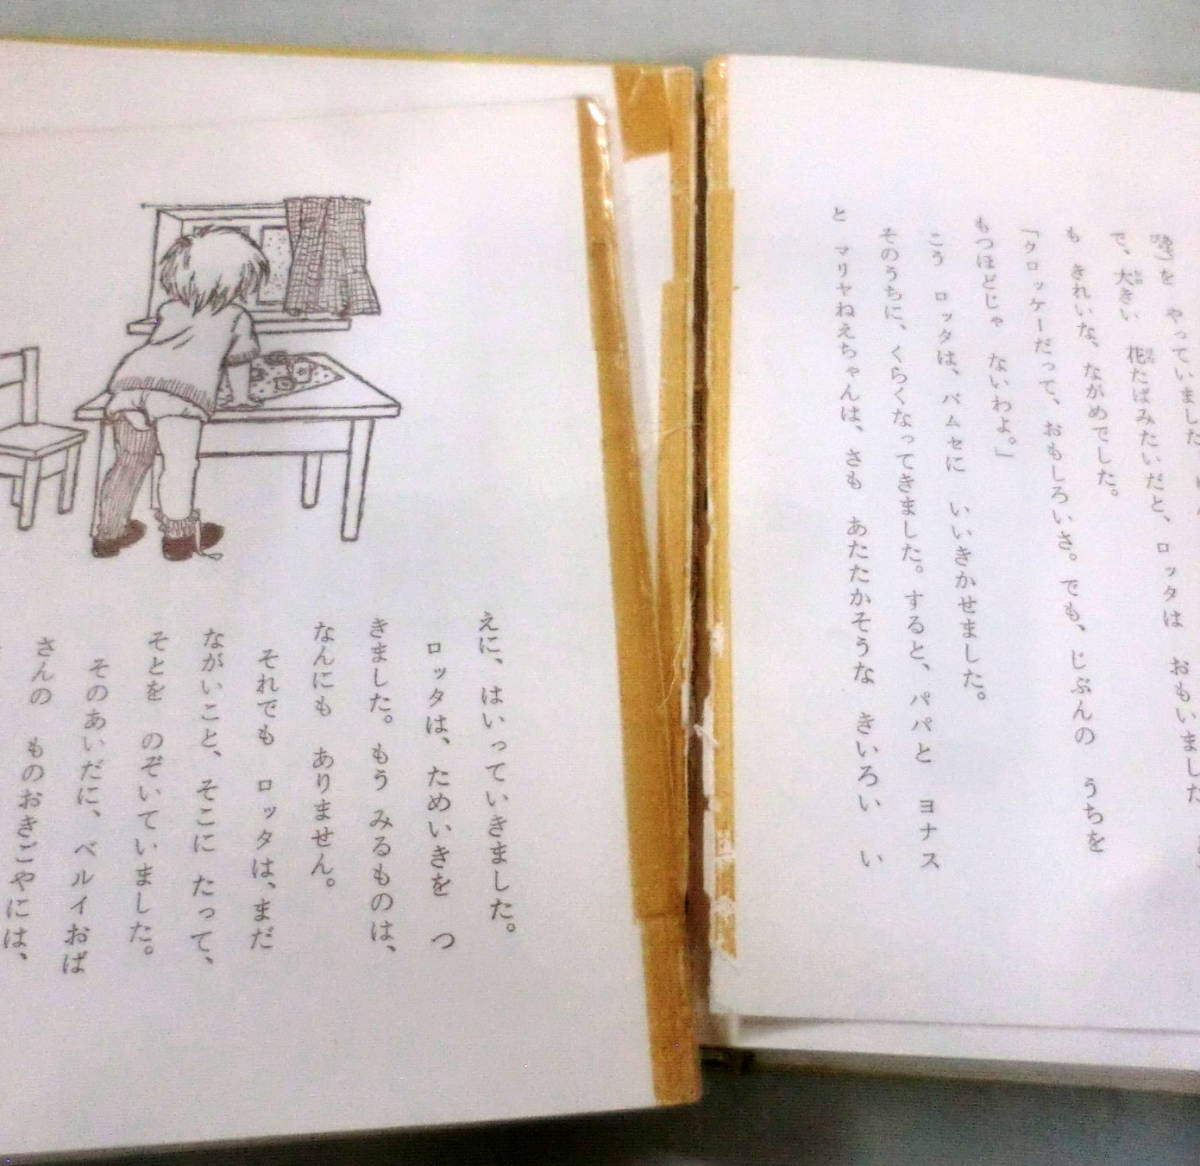 を やっていました
で、大きい 花たばみたいだと、ロッタは おもいました
も きれいな、ながめでした。
「クロッケーだって、おもしろいさ。でも、じぶんの うちを
もつほどじゃ ないわよ。」
こう ロッタは、バムセに いいきかせました。
そのうちに、くらくなってきました。すると、パパと ヨナス
と マリヤねえちゃんは、さも あたたかそうな きいろい い
えに、はいっていきました。
ロッタは、ためいきを つ
きました。もう みるものは、
なんにも ありません。
それでも ロッタは、まだ
ながいこと、そこに たって、
そとを のぞいていました。
そのあいだに、ベルイおば
さんの ものおきごやには、